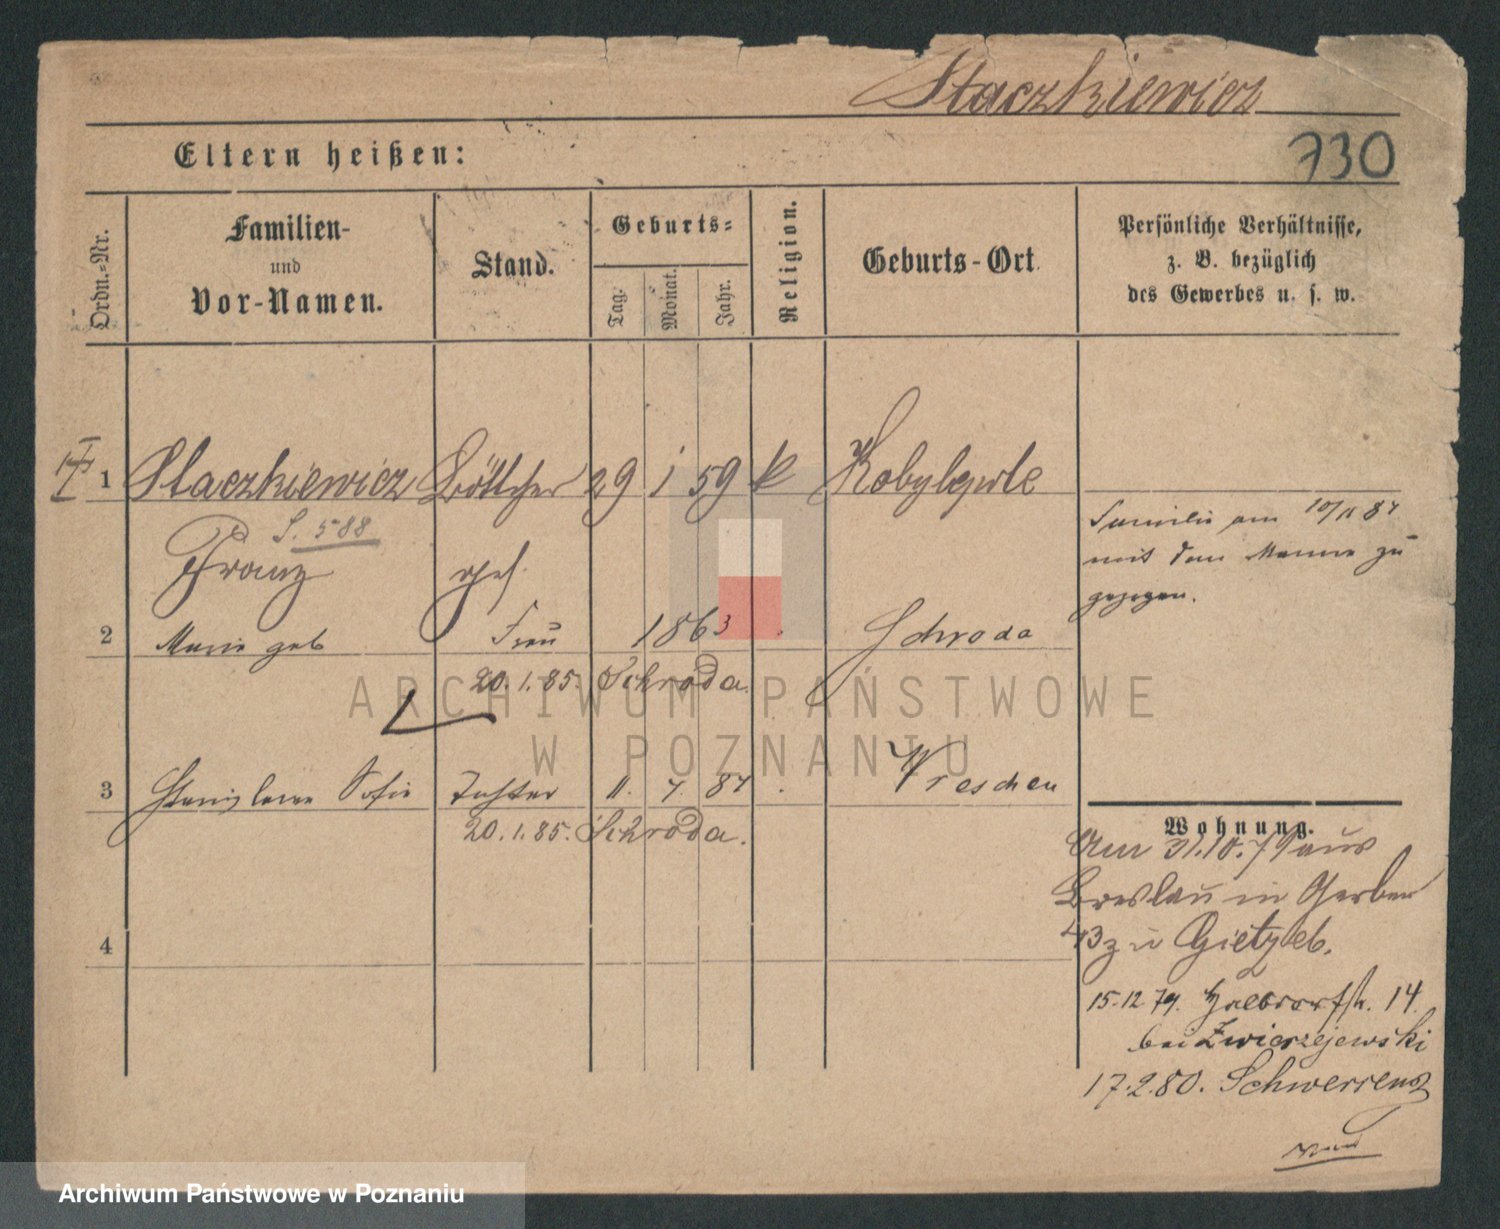 Staczkiewicz
730
Eltern heißen:
Ordn.-Nr.
Familien-
und
Vor-Namen.
Stand.
Geburts-
Tag.
Monat.
Jahr.
Religion.
Geburts-Ort
Persönliche Verhältnisse,
z. B. bezüglich
des Gewerbes u. s. w.
1 Staczkiewicz Böttcher 29 1 59 k
S. 588
Franz
Familie am 10/11 87
mit dem Manne zu
gezogen.
2 Marie geb Frau 1863 Schroda
20.1.85. Schroda
ARCHIWUM PAŃSTWOWE
W POZNANIU
3 Stanislawa Sofie Tochter 11. 7. 84 Wreschen
20.1.85. Schroda.
Wohnung.
Am 31.10.79 aus
Breslau in Gerber
43 zu
4
15.12 79. 14
bei Zwierzejewski
17.2.80. Schwersenz
Archiwum Państwowe w Poznaniu